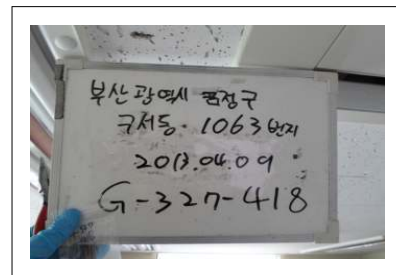 부산광역시 금정구
구서동. 1063번지
2013.04.09.
G-327-418